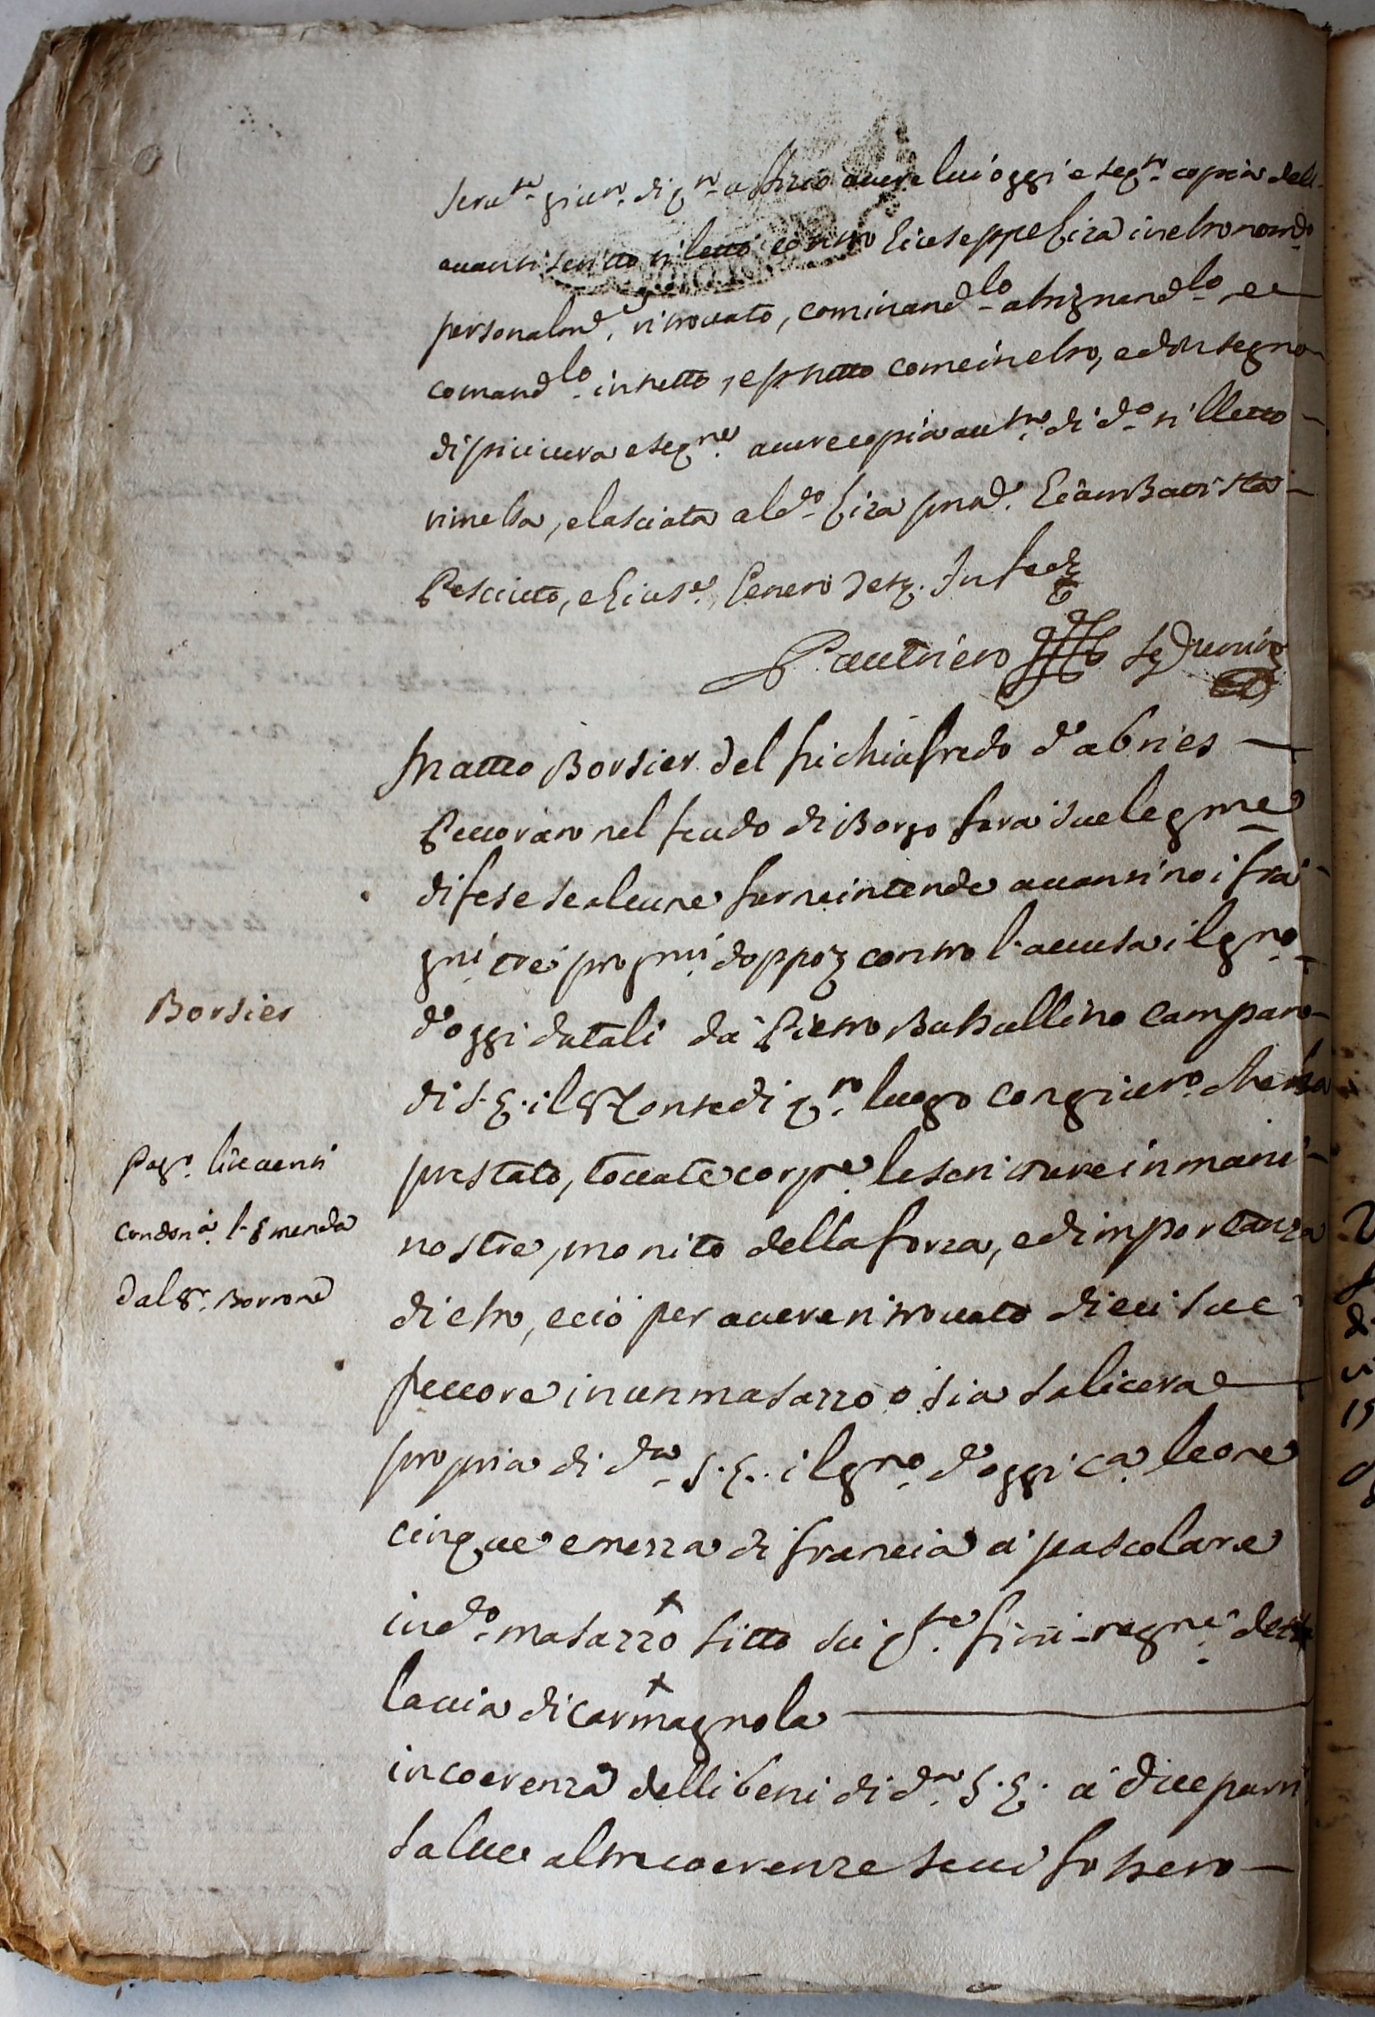 Serv.te giur.o di q.to attesto avere lui oggi eseg.to copia dell
avanti scritto biletto contro Giuseppe Gira in esso nom.do
personalm.e ritrovato, cominand.lo astrignand.lo, e
comand.lo in tutto, e p tutto come in esso, ed in segno
di piu vera eseg.ne avere copia aut.ca di d.o billetto
rimessa, e lasciata al d.o Gira pnti Gioan Batista
Pesciuto, e Gius.e Genero Test. In fede
Pautriero Ser.
Matteo Borsier del fu chiafredo d'abries
Peccoraro nel feudo di Borgo farà sue legme
difese se alcune farne intende avanti noi fra
gni tre progmi doppo contro l'accusa il gno
d'oggi datali da Pietro Baballino Camparo
di S. E. il Sr Conte di q.to luogo con giur.o che ha
prestato, toccate corp.e le scritture in mani
nostre, monito della forza, ed importanza
di esso, e ciò per avere ritrovato dieci sue
peccore in un masazzo o sia salicera
propria di d.a S. E. il gno d'oggi c.a le ore
cinque e mezza di francia a' pascolare
in d.o masazzo sitto su q.te fini reg.ne dett
la via di carmagnola
in coerenza delli beni di d.a S. E. a' due parti
salve altre coerenze se vi fossero
Borsier
Pag.o li deventi
condon.a l'Emenda
dal Sr. Borrone